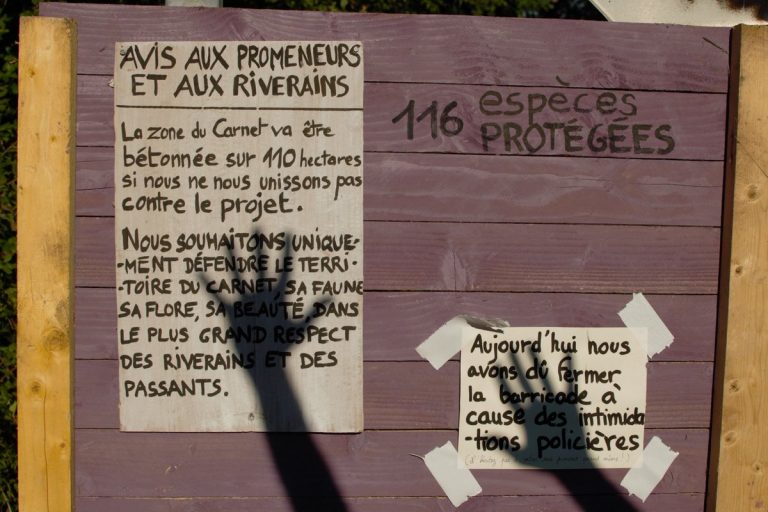 AVIS AUX PROMENEURS
ET AUX RIVERAINS
La zone du Carnet va être
bétonnée sur 110 hectares
si nous ne nous unissons pas
contre le projet.
NOUS SOUHAITONS UNIQUE-
-MENT DÉFENDRE LE TERRI-
-TOIRE DU CARNET, SA FAUNE
SA FLORE, SA BEAUTÉ, DANS
LE PLUS GRAND RESPECT
DES RIVERAINS ET DES
PASSANTS.
116 espèces
PROTÉGÉES
Aujourd'hui nous
avons dû fermer
la barricade à
cause des intimida
-tions policières